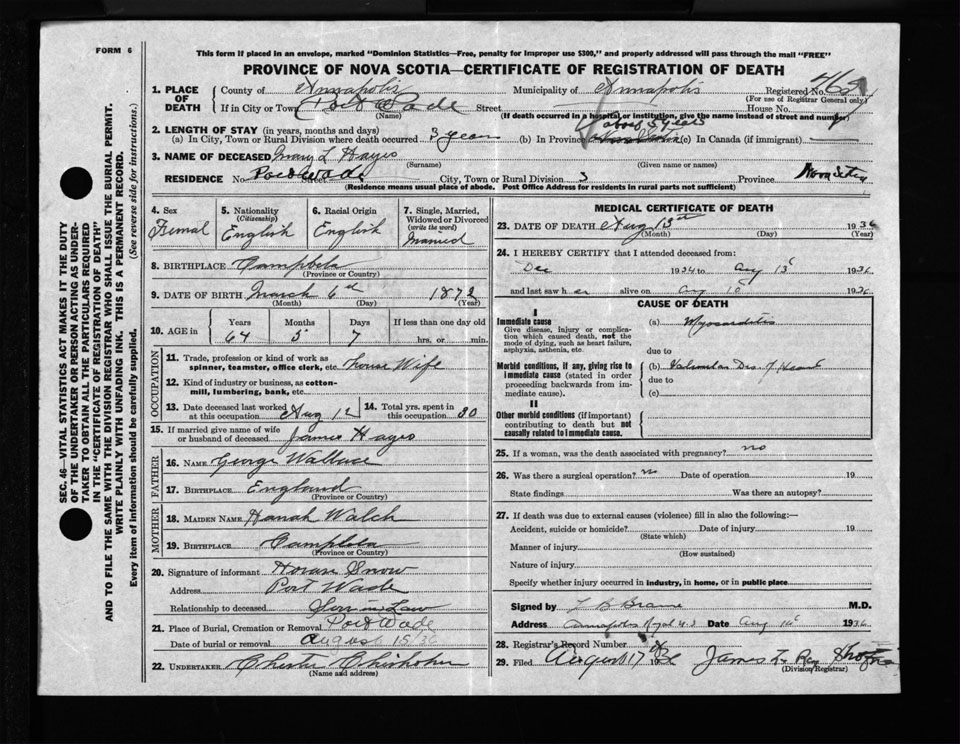 FORM 6
This form if placed in an envelope, marked "Dominion Statistics—Free, penalty for improper use $300," and properly addressed will pass through the mail "FREE"
PROVINCE OF NOVA SCOTIA—CERTIFICATE OF REGISTRATION OF DEATH
1. PLACE OF DEATH County of Annapolis Municipality of Annapolis Registered No.
(For use of Registrar General only)
If in City or Town Port Wade Street House No.
(Name) (If death occurred in a hospital or institution, give the name instead of street and number)
2. LENGTH OF STAY (in years, months and days)
(a) In City, Town or Rural Division where death occurred 3 years (b) In Province (c) In Canada (if immigrant)
3. NAME OF DECEASED Mary L Hayes
(Surname) (Given name or names)
RESIDENCE No. Port Wade Street City, Town or Rural Division 3 Province Nova Scotia
(Residence means usual place of abode. Post Office Address for residents in rural parts not sufficient)
4. Sex Femal
5. Nationality (Citizenship) English
6. Racial Origin English
7. Single, Married, Widowed or Divorced (write the word) Married
8. BIRTHPLACE
(Province or Country)
9. DATE OF BIRTH March 6th 1872
(Month) (Day) (Year)
10. AGE in Years Months Days If less than one day old
64 5 7 hrs. or min.
OCCUPATION
11. Trade, profession or kind of work as spinner, teamster, office clerk, etc. House Wife
12. Kind of industry or business, as cotton-mill, lumbering, bank, etc.
13. Date deceased last worked at this occupation Aug 12
14. Total yrs. spent in this occupation 30
15. If married give name of wife or husband of deceased James Hayes
FATHER
16. NAME George Wallace
17. BIRTHPLACE England
(Province or Country)
MOTHER
18. MAIDEN NAME Hanah Walch
19. BIRTHPLACE
(Province or Country)
20. Signature of informant Snow
Address Port Wade
Relationship to deceased Son in Law
21. Place of Burial, Cremation or Removal Port Wade
Date of burial or removal August 15/36
22. UNDERTAKER Chester Chisholm
(Name and address)
MEDICAL CERTIFICATE OF DEATH
23. DATE OF DEATH Aug 13th 1936
(Month) (Day) (Year)
24. I HEREBY CERTIFY that I attended deceased from:
Dec 1934 to Aug 13 1936
and last saw her alive on Aug 10 1936
CAUSE OF DEATH
I
Immediate cause
Give disease, injury or complication which caused death, not the mode of dying, such as heart failure, asphyxia, asthenia, etc.
(a) Myocarditis
due to
Morbid conditions, if any, giving rise to immediate cause (stated in order proceeding backwards from immediate cause).
(b) Valvular Dis. of Heart
due to
(c)
II
Other morbid conditions (if important) contributing to death but not causally related to immediate cause.
25. If a woman, was the death associated with pregnancy? no
26. Was there a surgical operation? no Date of operation 19
State findings Was there an autopsy?
27. If death was due to external causes (violence) fill in also the following:—
Accident, suicide or homicide? Date of injury 19
(State which)
Manner of injury
(How sustained)
Nature of injury
Specify whether injury occurred in industry, in home, or in public place
Signed by M.D.
Address Annapolis Royal N.S Date Aug 14 1936
28. Registrar's Record Number
29. Filed August 17 1936 James
(Division Registrar)
SEC. 46—VITAL STATISTICS ACT MAKES IT THE DUTY
OF THE UNDERTAKER OR PERSON ACTING AS UNDER-
TAKER TO OBTAIN ALL THE PARTICULARS REQUIRED
IN THE "CERTIFICATE OF REGISTRATION OF DEATH"
AND TO FILE THE SAME WITH THE DIVISION REGISTRAR WHO SHALL ISSUE THE BURIAL PERMIT.
WRITE PLAINLY WITH UNFADING INK. THIS IS A PERMANENT RECORD.
Every item of information should be carefully supplied. (See reverse side for instructions.)